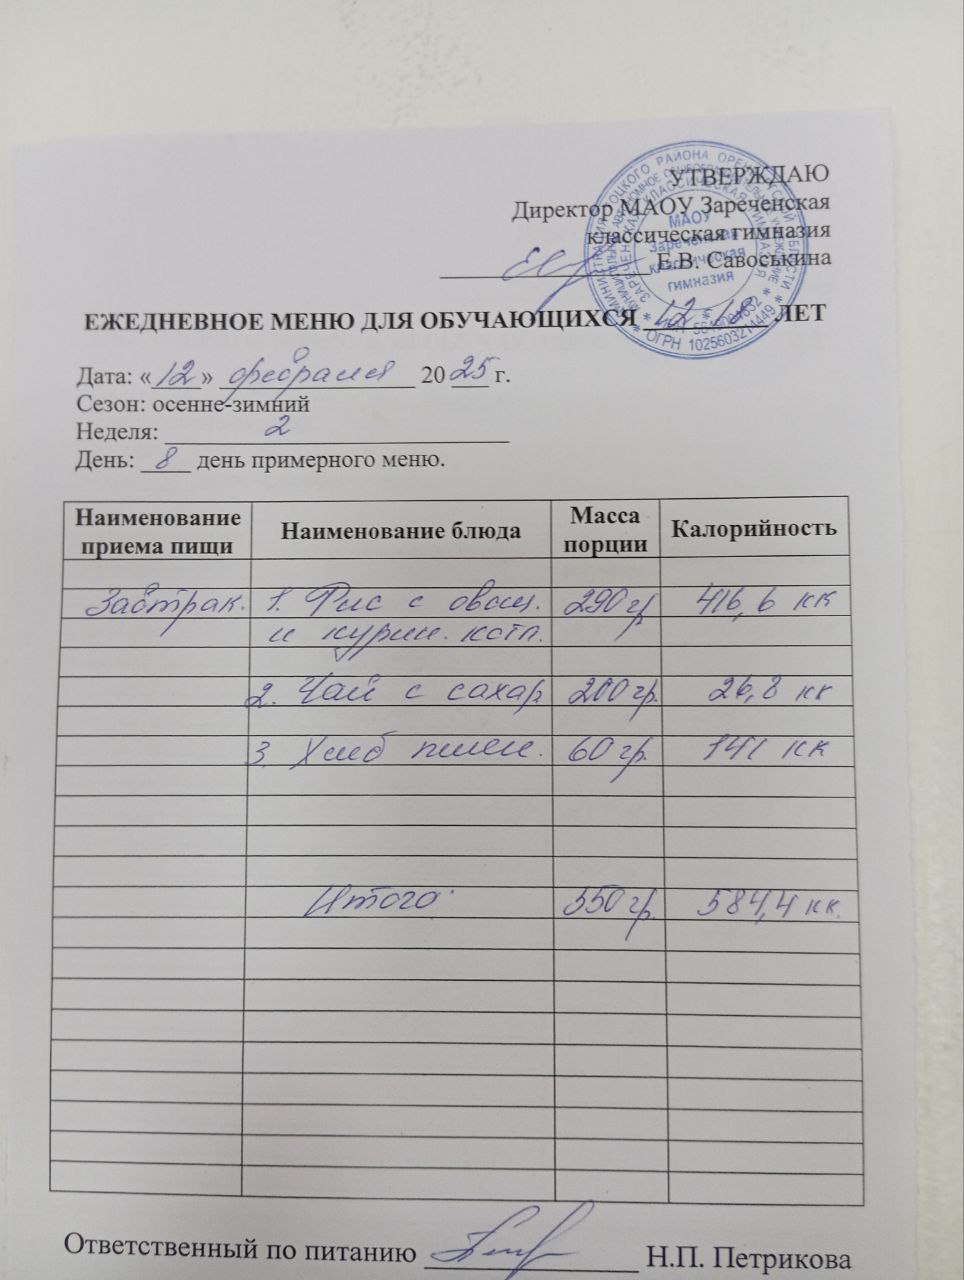 УТВЕРЖДАЮ
Директор МАОУ Зареченская
классическая гимназия
Е.В. Савоськина
МАОУ
Зареченская
классическая
гимназия
ОГРН 1025603214449
ЕЖЕДНЕВНОЕ МЕНЮ ДЛЯ ОБУЧАЮЩИХСЯ 12-18 ЛЕТ
Дата: «12» февраля 2025 г.
Сезон: осенне-зимний
Неделя: 2
День: 8 день примерного меню.
Наименование приема пищи Наименование блюда Масса порции Калорийность
Завтрак. 1. Рис с овощ. 290 гр 416,6 кк
и курин. котл.
2. Чай с сахар. 200 гр. 26,8 кк
3. Хлеб пшен. 60 гр. 141 кк
Итого: 550 гр. 584,4 кк.
Ответственный по питанию Н.П. Петрикова